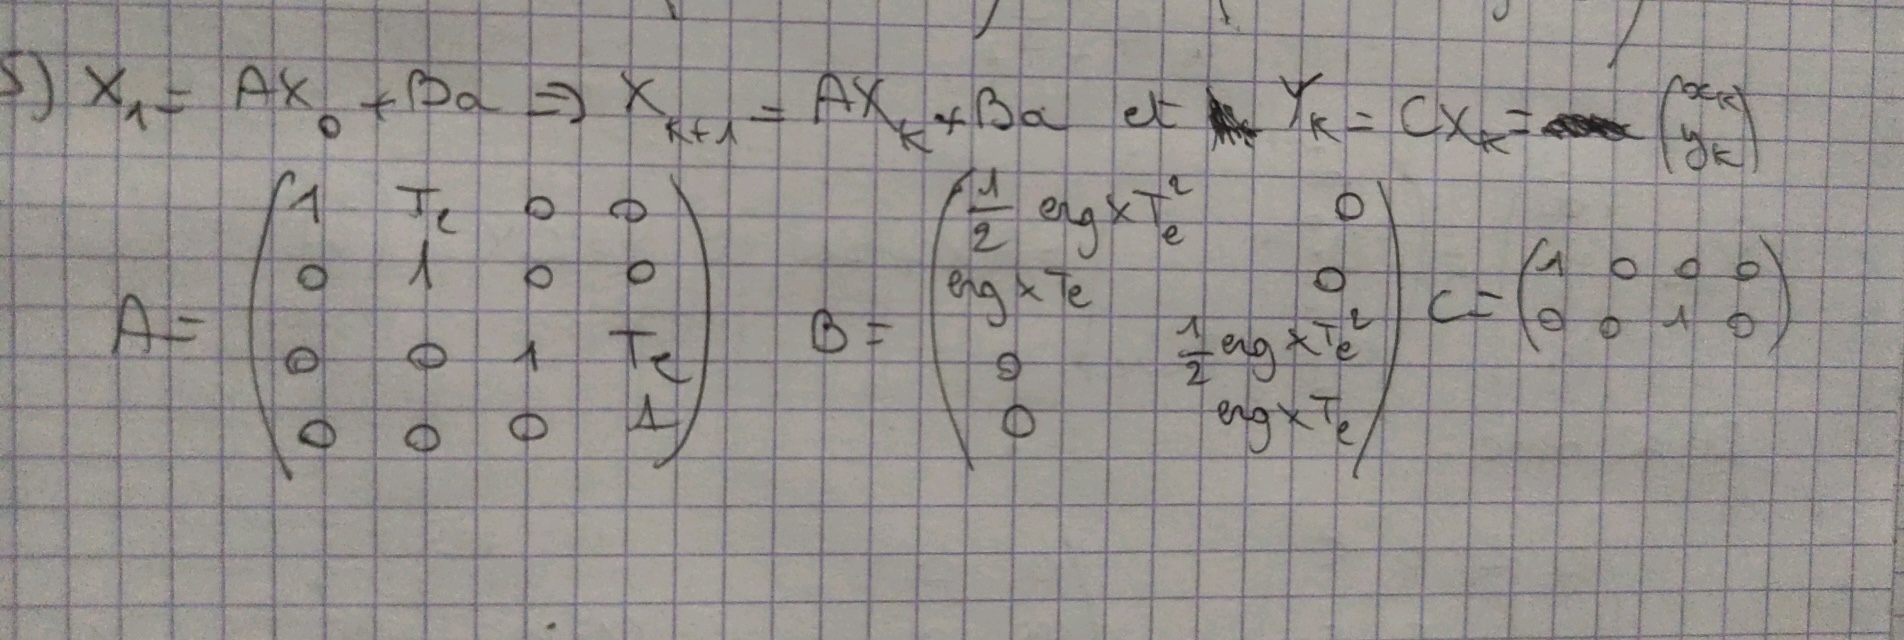 5) X₁ = AX₀ + Ba ⇒ Xₖ₊₁ = AXₖ + Ba et Yₖ = CXₖ = (xₖ yₖ)
A = (1 Te 0 0
0 1 0 0
0 0 1 Te
0 0 0 1)
B = (1/2 erg×Te² 0
erg×Te 0
0 1/2 erg×Te²
0 erg×Te)
C = (1 0 0 0
0 0 1 0)